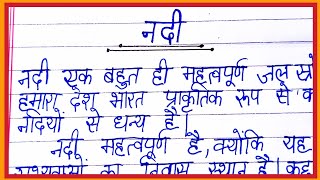 नदी
नदी एक बहुत ही महत्वपूर्ण जल
हमारा देश भारत प्राकृतिक रूप से
नदियों से धन्य है।
नदी महत्वपूर्ण है, क्योंकि यह
का निवास स्थान है।